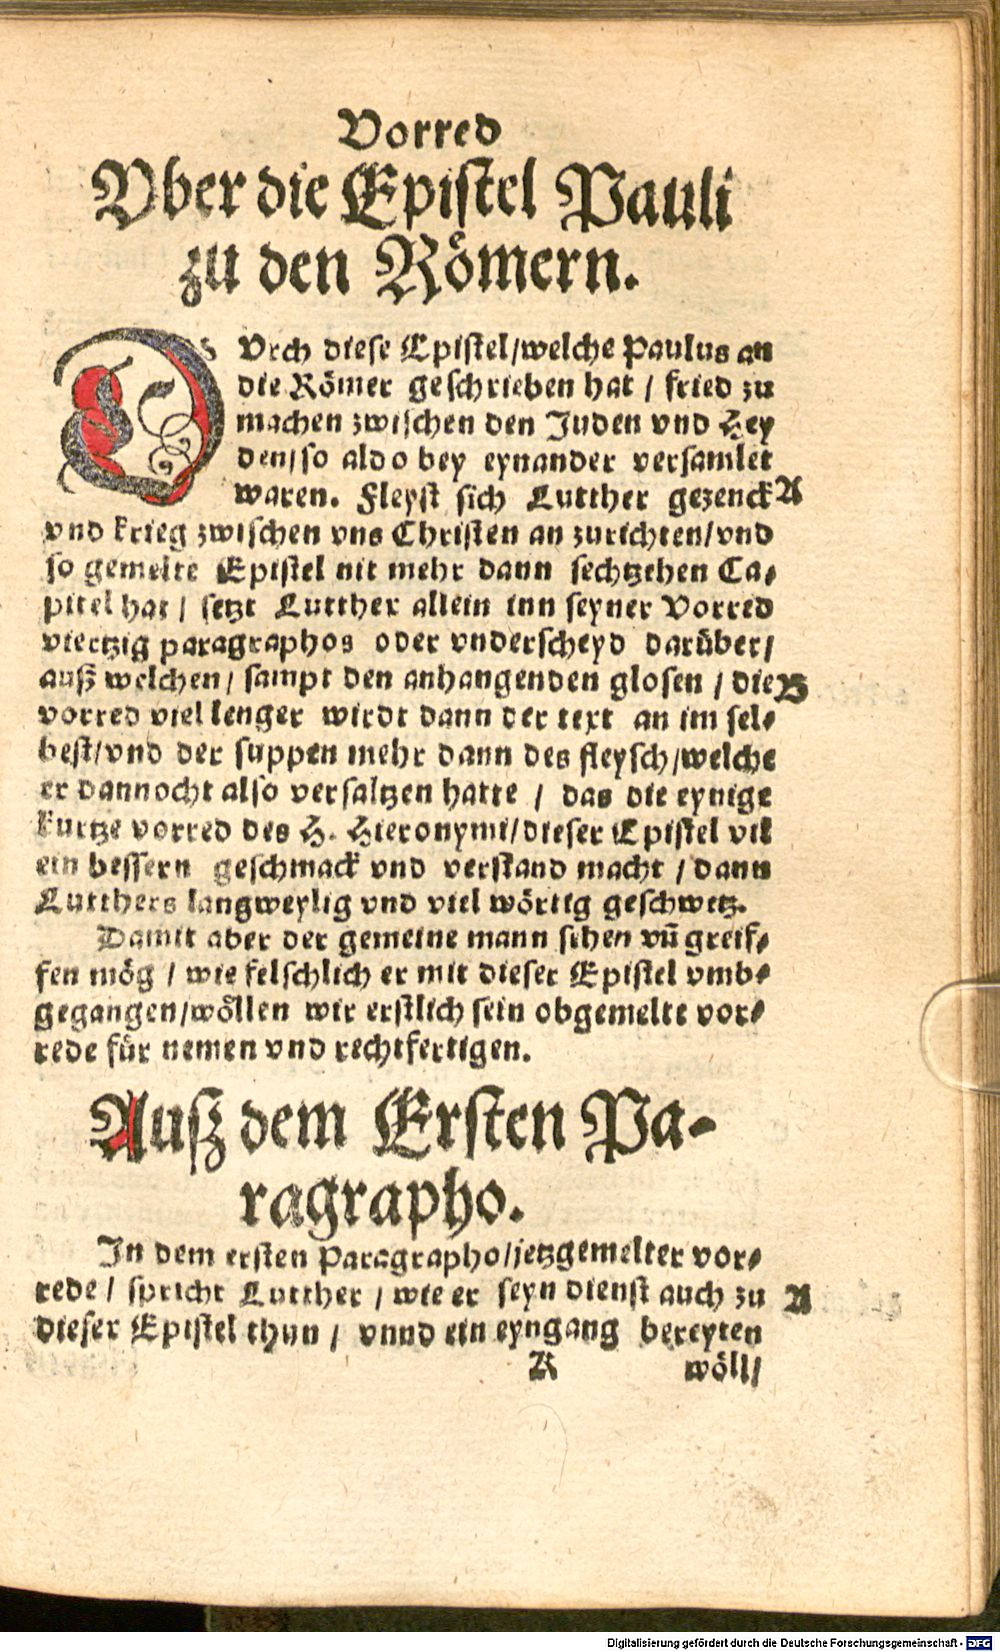 Vorred
Vber die Epistel Pauli
zu den Römern.
DVrch diese Epistel/welche Paulus an
die Römer geschrieben hat / fried zu
machen zwischen den Juden vnd Hey
den/so aldo bey eynander versamlet
waren. Fleyst sich Lutther gezenck A
vnd krieg zwischen vns Christen an zurichten/vnd
so gemelte Epistel nit mehr dann sechtzehen Ca-
pitel hat / setzt Lutther allein inn seyner Vorred
viertzig paragraphos oder vnderscheyd darüber/
auß welchen / sampt den anhangenden glosen / die B
vorred viel lenger wirdt dann der text an im sel-
best/vnd der suppen mehr dann des fleysch/welche
er dannocht also versaltzen hatte / das die eynige
kurtze vorred des H. Hieronymi/dieser Epistel vil
ein bessern geschmack vnd verstand macht / dann
Lutthers langweylig vnd viel wörtig geschwetz.
Damit aber der gemeine mann sehen vñ greif-
fen mög / wie felschlich er mit dieser Epistel vmb-
gegangen/wöllen wir erstlich sein obgemelte vor-
rede für nemen vnd rechtfertigen.
Auß dem Ersten Pa-
ragrapho.
In dem ersten Paragrapho/jetzgemelter vor-
rede / spricht Lutther / wie er seyn dienst auch zu A
dieser Epistel thun / vnnd ein eyngang bereyten
A wöll/
Digitalisierung gefördert durch die Deutsche Forschungsgemeinschaft - DFG